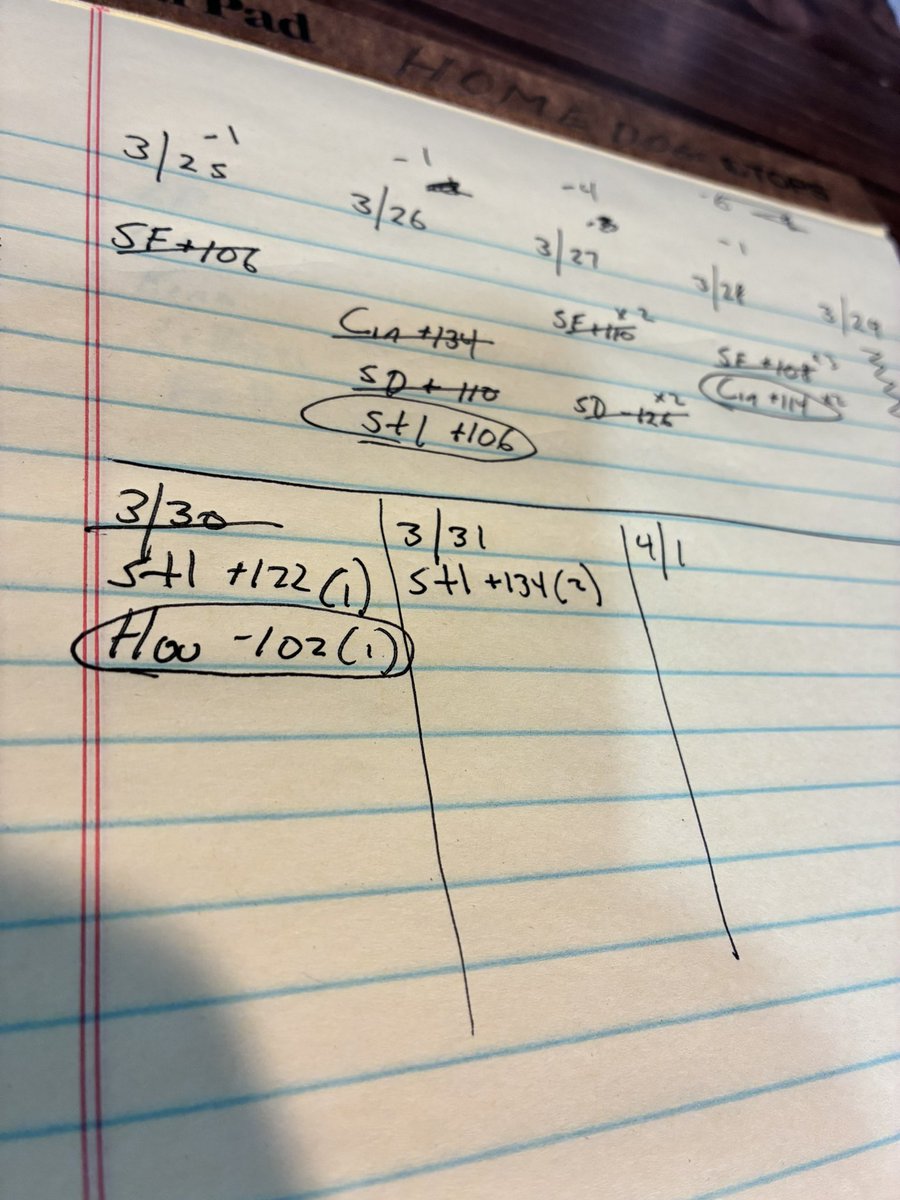 Pad
HOME DOG
-1
3/25
SF +106
-1
3/26
Cin +134
SD + 110
Stl +106
-4
3/27
SF +110 x2
SD -126 x2
-6
-1
3/28
SF +108
Cin +114 x2
3/29
3/30
Stl +122 (1)
Hou -102 (1)
3/31
Stl +134 (2)
4/1